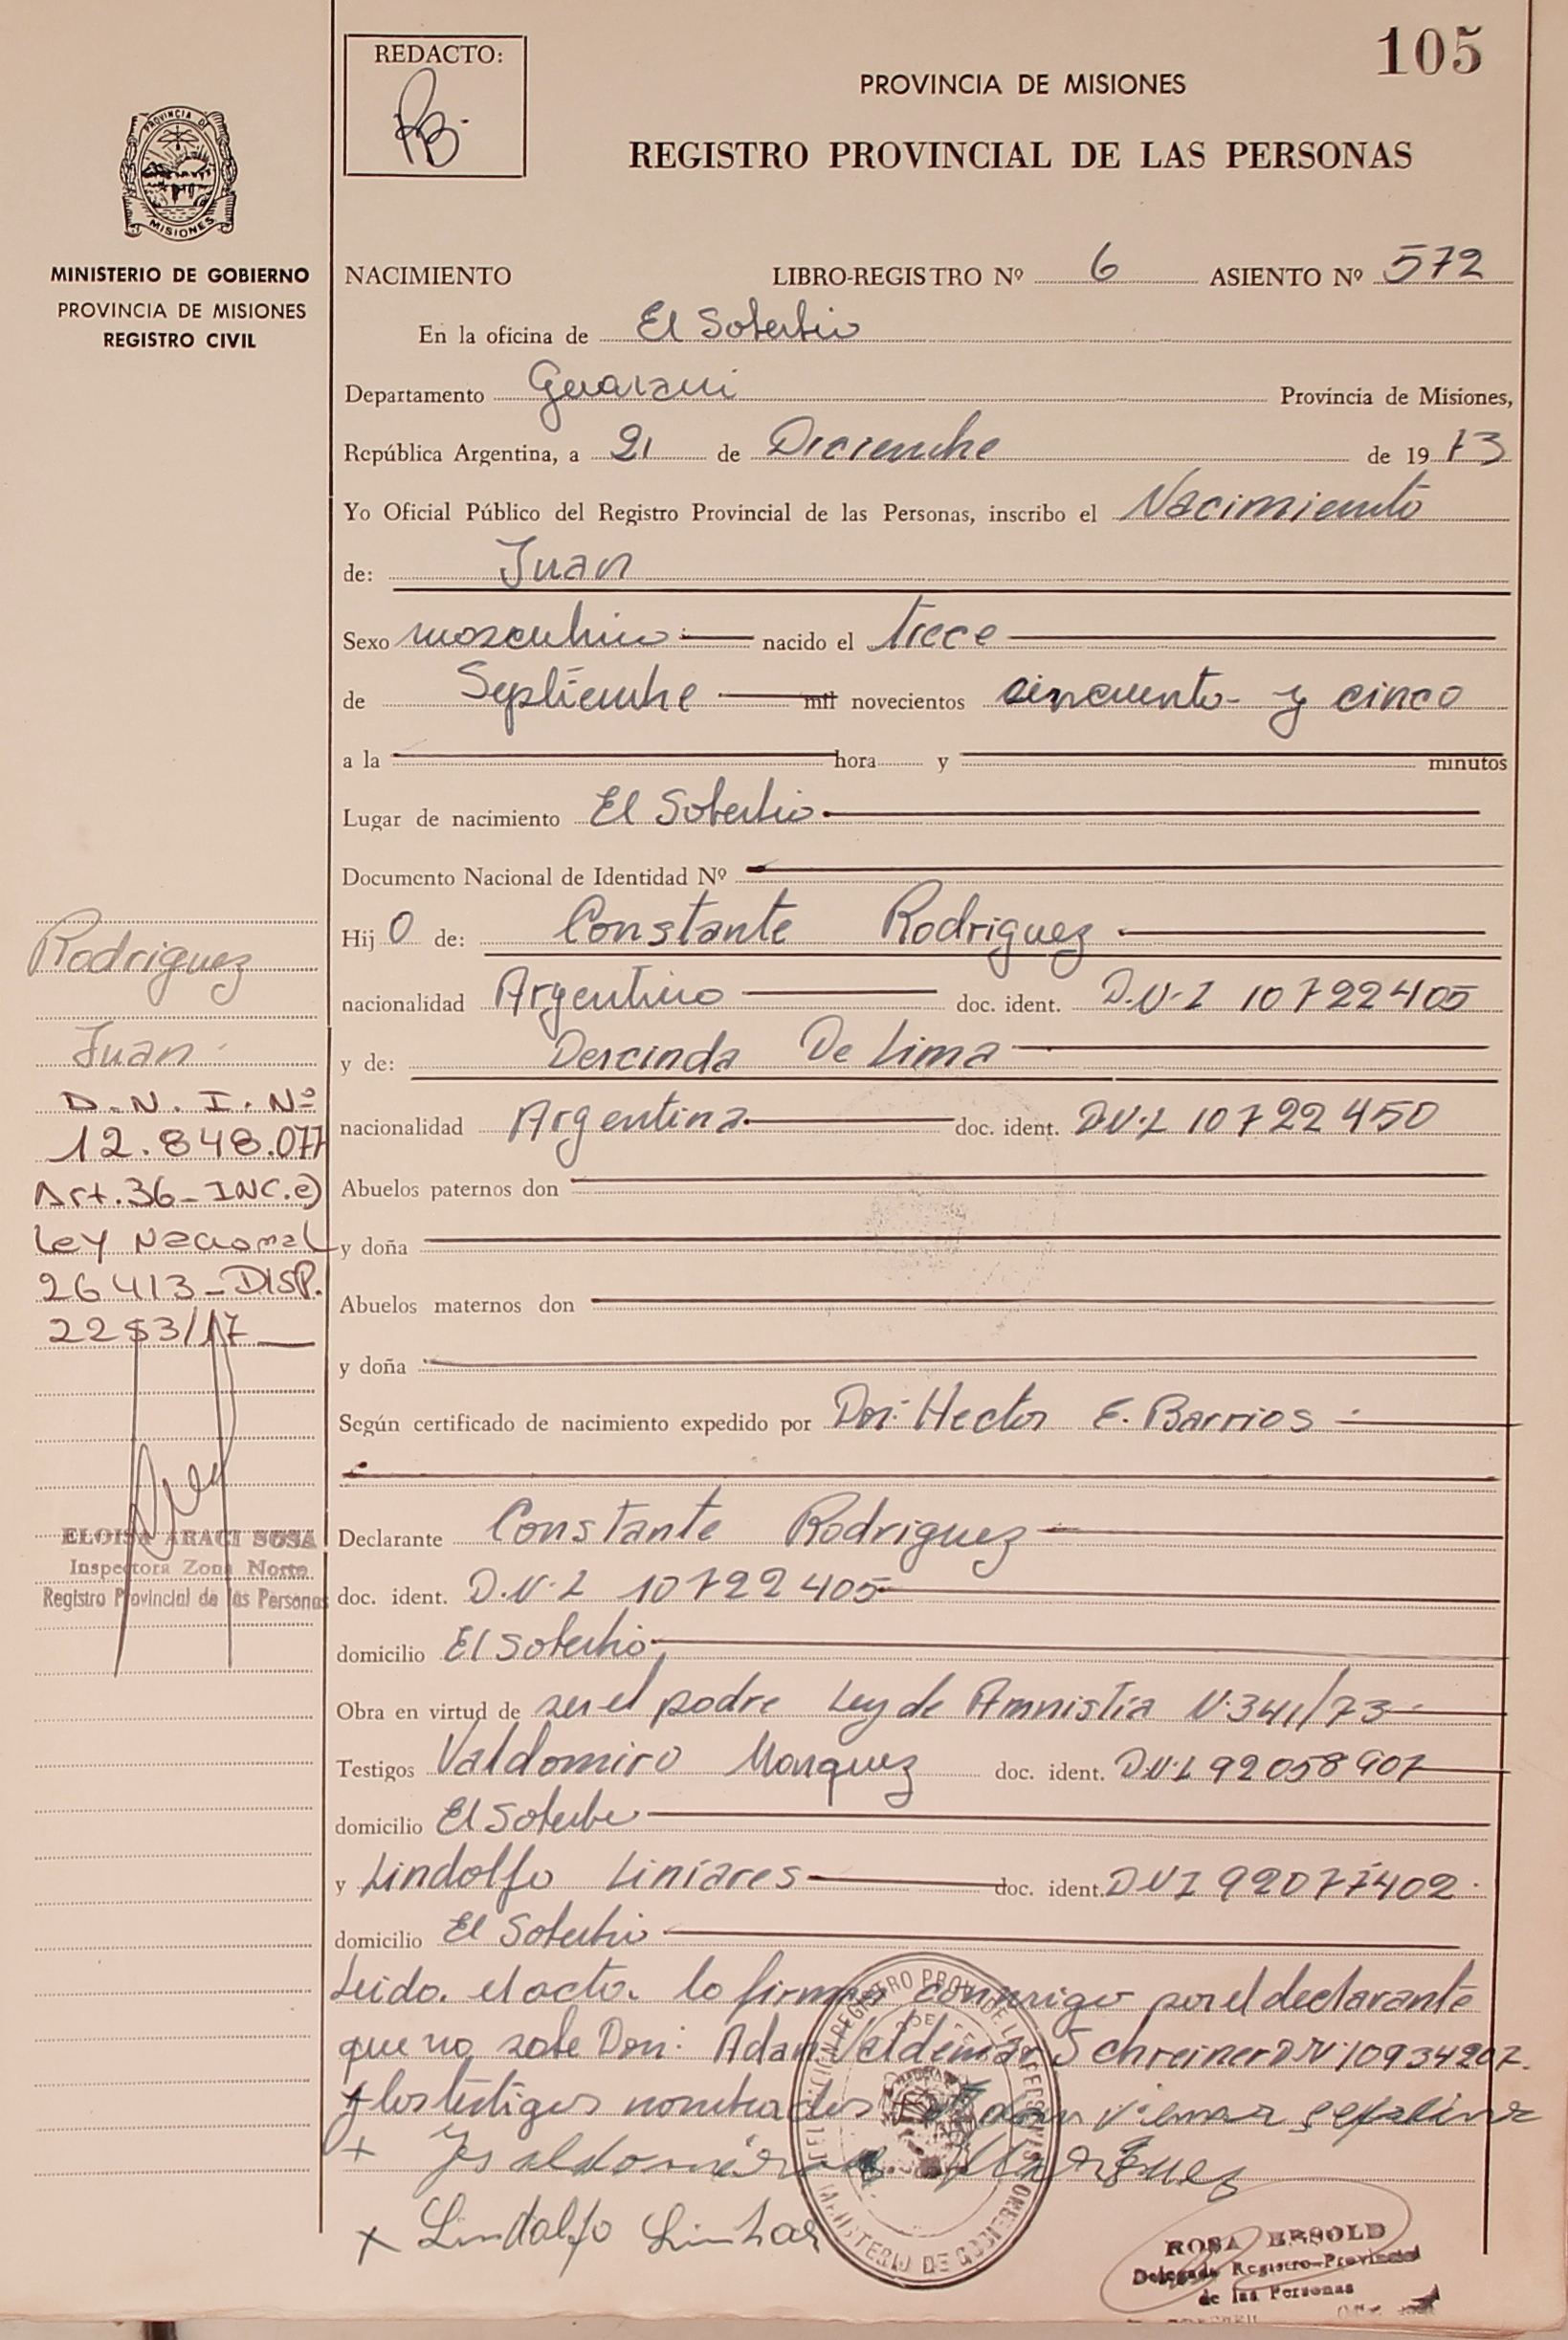 105
REDACTO:
PROVINCIA DE MISIONES
REGISTRO PROVINCIAL DE LAS PERSONAS
PROVINCIA DE
MISIONES
MINISTERIO DE GOBIERNO
PROVINCIA DE MISIONES
REGISTRO CIVIL
NACIMIENTO LIBRO-REGISTRO Nº 6 ASIENTO Nº 572
En la oficina de El Soberbio
Departamento Guarani Provincia de Misiones,
República Argentina, a 21 de Diciembre de 1973
Yo Oficial Público del Registro Provincial de las Personas, inscribo el Nacimiento
de: Juan
Sexo masculino nacido el trece
de Septiembre mil novecientos cincuenta y cinco
a la hora y minutos
Lugar de nacimiento El Soberbio
Documento Nacional de Identidad Nº
Hijo de: Constante Rodriguez
nacionalidad Argentino doc. ident. D.N.I 10722405
y de: Dercinda De Lima
nacionalidad Argentina doc. ident. D.N.I 10722450
Abuelos paternos don
y doña
Abuelos maternos don
y doña
Según certificado de nacimiento expedido por Don: Hector E. Barrios
Declarante Constante Rodriguez
doc. ident. D.N.I 10722405
domicilio El Soberbio
Obra en virtud de ser el padre Ley de Amnistia N. 341/73
Testigos Valdomiro Marquez doc. ident. D.N.I 92058907
domicilio El Soberbio
y Lindolfo Liniares doc. ident. DNI 92077402
domicilio El Soberbio
Leida el acta lo firman conmigo por el declarante
que no sabe Don: Adan Valdemar Schreiner DNI 10934207.
y los testigos nombrados
+ Marquez
x Lindolfo Linhar
Rodriguez
Juan
D.N.I. Nº
12.848.077
Art. 36-INC.e)
Ley Nacional
26413-DISP.
2253/17
ELOISA ARACI SOSA
Inspectora Zona Norte
Registro Provincial de las Personas
MINISTERIO DE GOBIERNO
ROSA ERSOLD
Delegada Registro Provincial
de las Personas